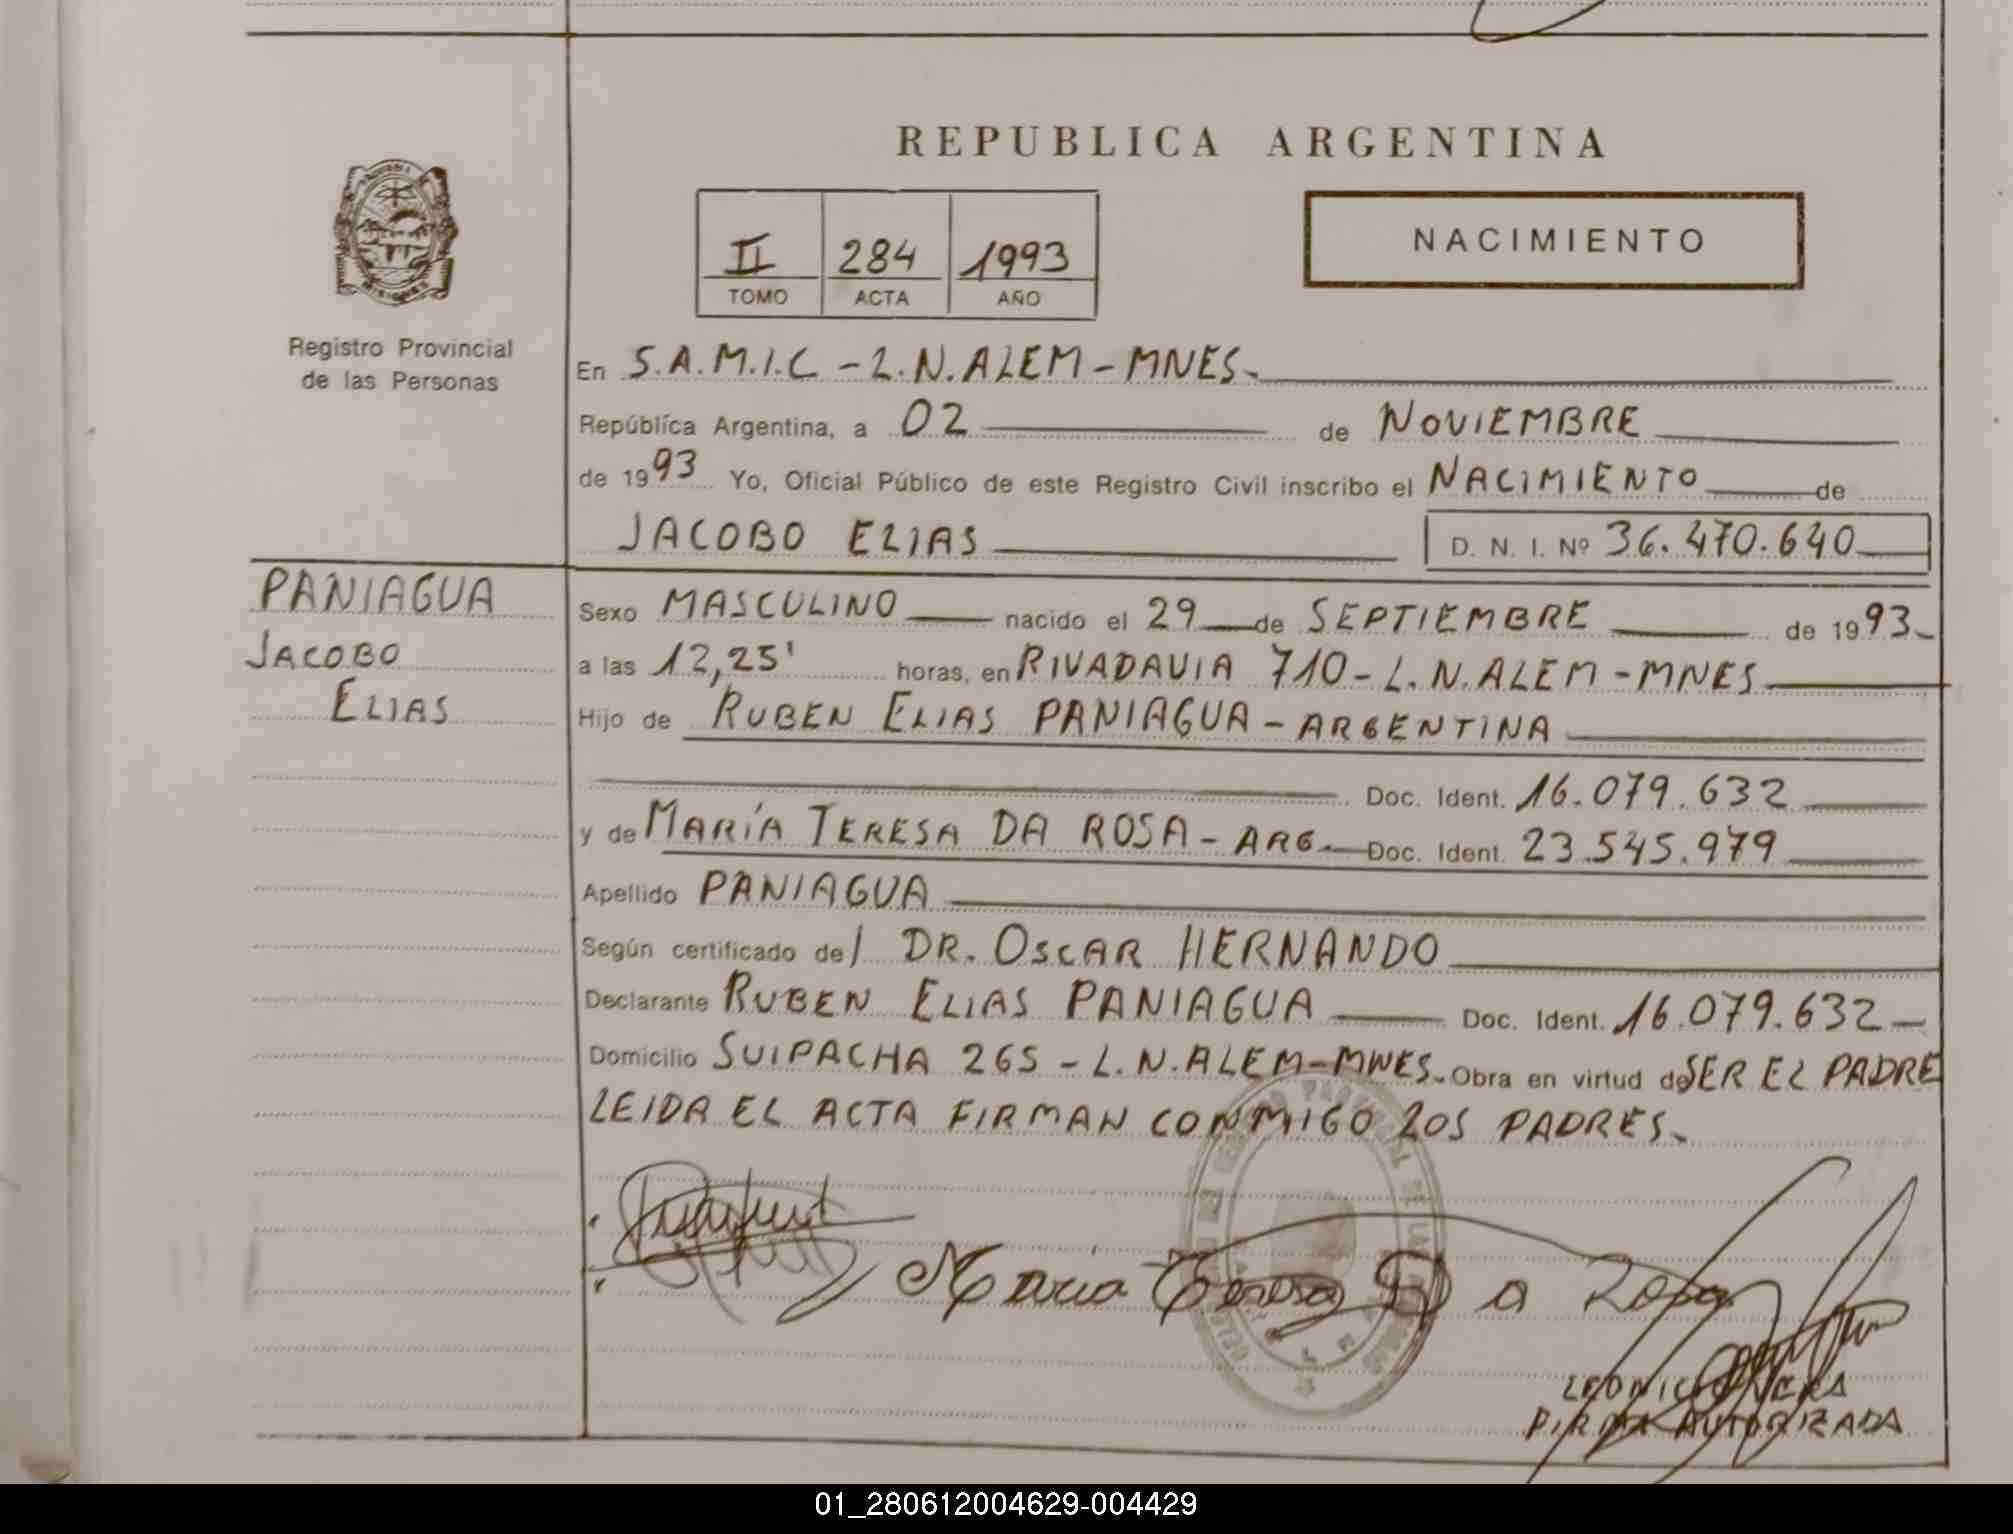 REPUBLICA ARGENTINA
II 284 1993
TOMO ACTA AÑO
NACIMIENTO
MISIONES
Registro Provincial
de las Personas
En S.A.M.I.C - L.N.ALEM - MNES.
República Argentina, a 02 de NOVIEMBRE
de 1993 Yo, Oficial Público de este Registro Civil inscribo el NACIMIENTO de
JACOBO ELIAS D. N. I. Nº 36.470.640
PANIAGUA
JACOBO
ELIAS
Sexo MASCULINO nacido el 29 de SEPTIEMBRE de 1993.
a las 12,25' horas, en RIVADAVIA 710 - L.N.ALEM - MNES
Hijo de RUBEN ELIAS PANIAGUA - ARGENTINA
Doc. Ident. 16.079.632
y de MARÍA TERESA DA ROSA - ARG. Doc. Ident. 23.545.979
Apellido PANIAGUA
Según certificado del DR. OSCAR HERNANDO
Declarante RUBEN ELIAS PANIAGUA Doc. Ident. 16.079.632
Domicilio SUIPACHA 265 - L.N.ALEM - MNES. Obra en virtud de SER EL PADRE
LEIDA EL ACTA FIRMAN CONMIGO LOS PADRES.
Maria Teresa Da Rosa
FIRMA AUTORIZADA
01_280612004629-004429